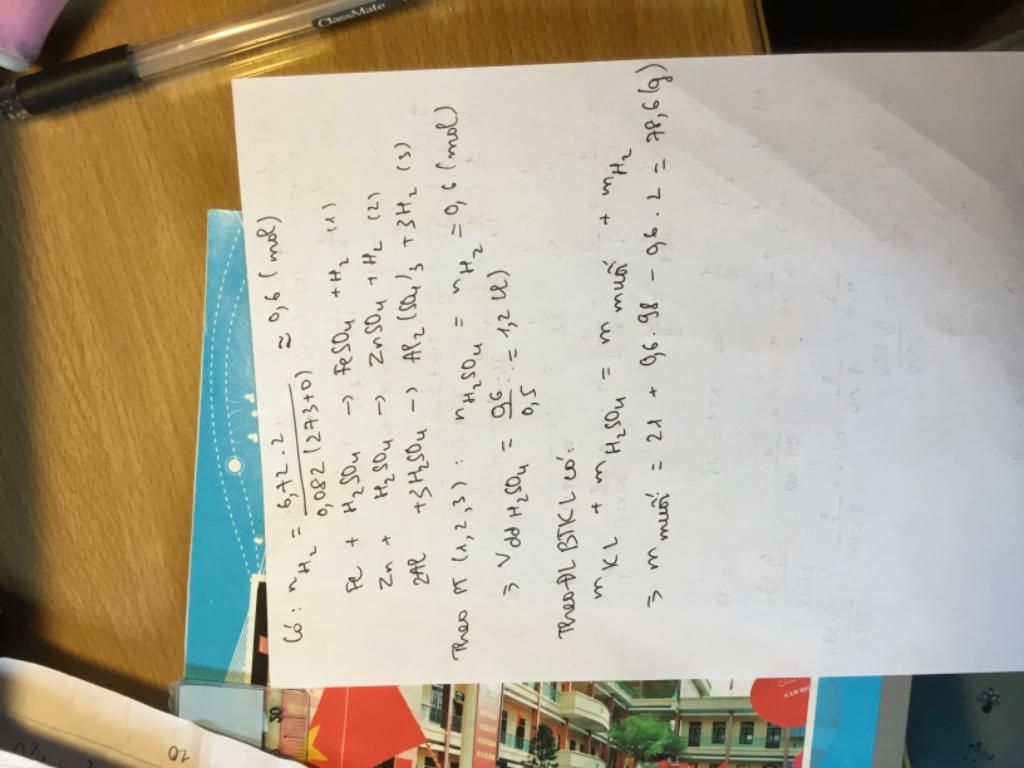 Có: nH2 = 6,72.2 / 0,082(273+0) ≈ 0,6 (mol)
Fe + H2SO4 -> FeSO4 + H2 (1)
Zn + H2SO4 -> ZnSO4 + H2 (2)
2Al + 3H2SO4 -> Al2(SO4)3 + 3H2 (3)
Theo PT (1,2,3): nH2SO4 = nH2 = 0,6 (mol)
=> Vdd H2SO4 = 0,6 / 0,5 = 1,2 (l)
Theo ĐL BTKL có:
mKL + mH2SO4 = m muối + mH2
=> m muối = 21 + 0,6.98 - 0,6.2 = 78,6 (g)
ClassMate